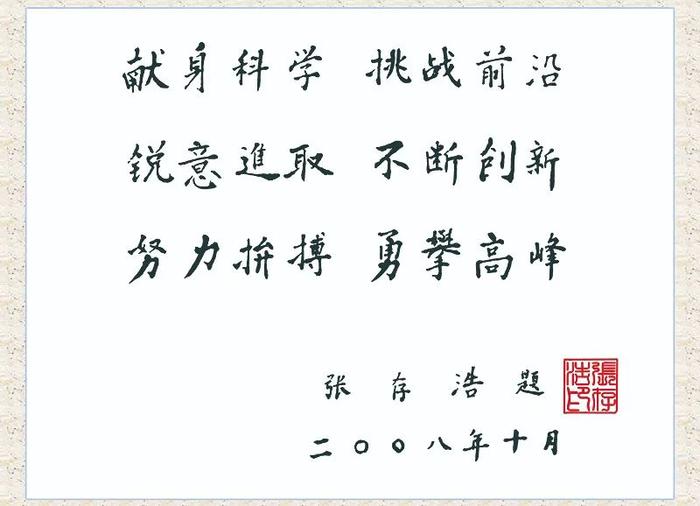 献身科学 挑战前沿
锐意進取 不断创新
努力拚搏 勇攀高峰
张存浩题
張存浩印
二〇〇八年十月